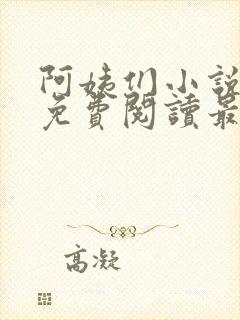 阿姨们小說
免費閱讀最
高凝